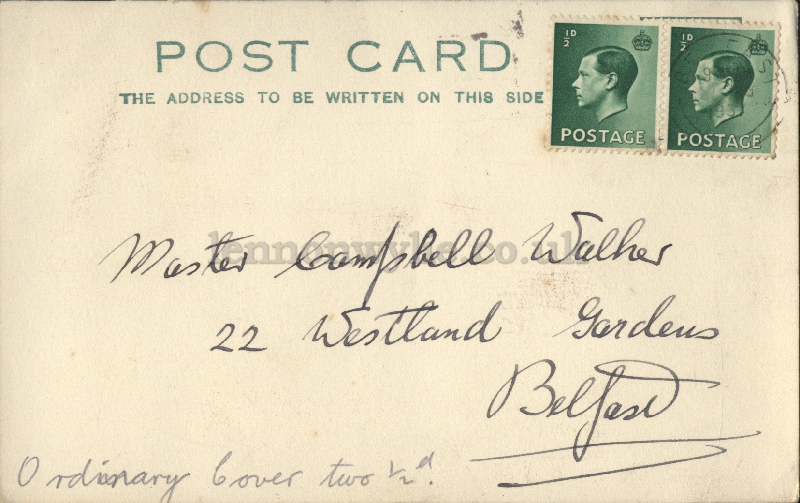 POST CARD
THE ADDRESS TO BE WRITTEN ON THIS SIDE
½D
POSTAGE
½D
POSTAGE
lennonwylie.co.uk
Master Campbell Walker
22 Westland Gardens
Belfast
Ordinary Cover two ½d.